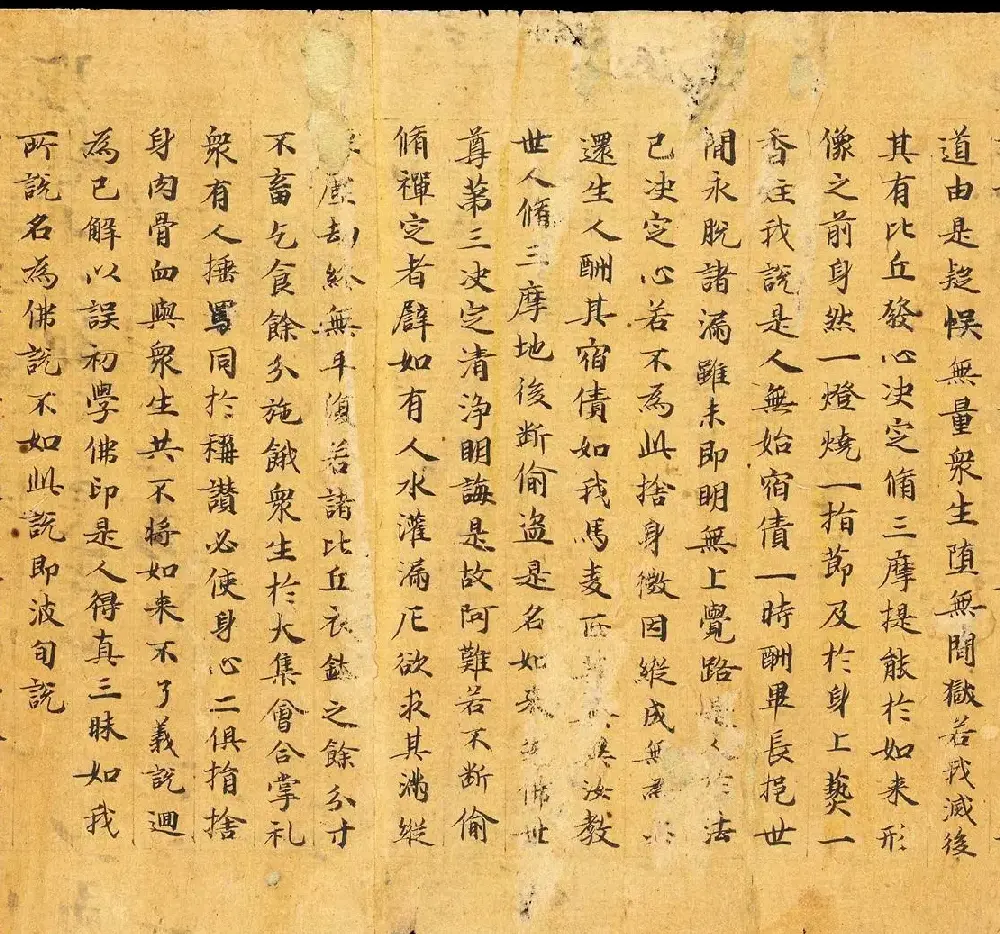 道由是疑悮無量衆生墮無間獄若我滅後
其有比丘發心决定脩三摩提能於如来形
像之前身然一燈燒一指節及於身上爇一
香炷我說是人無始宿債一時酬畢長挹世
間永脫諸漏雖未即明無上覺路是人於法
已决定心若不為此捨身微因縱成無為必
還生人酬其宿債如我馬麦正等無異汝教
世人脩三摩地後断偷盗是名如来先佛世
尊第三决定清浄明誨是故阿難若不断偷
脩禪定者譬如有人水灌漏卮欲求其滿縱
塵劫終無平復若諸比丘衣鉢之餘分寸
不畜乞食餘分施餓衆生於大集會合掌礼
衆有人捶罵同於稱讚必使身心二俱捐捨
身肉骨血與衆生共不將如来不了義說迴
為已解以誤初學佛印是人得真三昧如我
所說名為佛說不如此說即波旬說